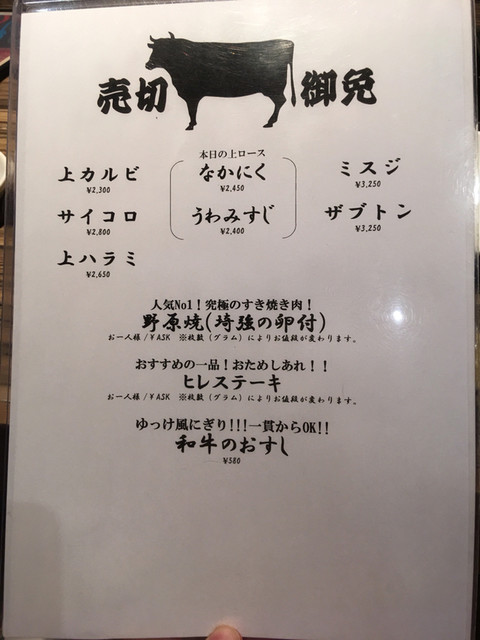 売切 御免
上カルビ
¥2,300
サイコロ
¥2,800
上ハラミ
¥2,650
本日の上ロース
なかにく
¥2,450
うわみすじ
¥2,400
ミスジ
¥3,250
ザブトン
¥3,250
人気No1！究極のすき焼き肉！
野原焼(埼強の卵付)
お一人様/¥ASK ※枚数(グラム)によりお値段が変わります。
おすすめの一品！おためしあれ！！
ヒレステーキ
お一人様/¥ASK ※枚数(グラム)によりお値段が変わります。
ゆっけ風にぎり!!!一貫からOK!!
和牛のおすし
¥580